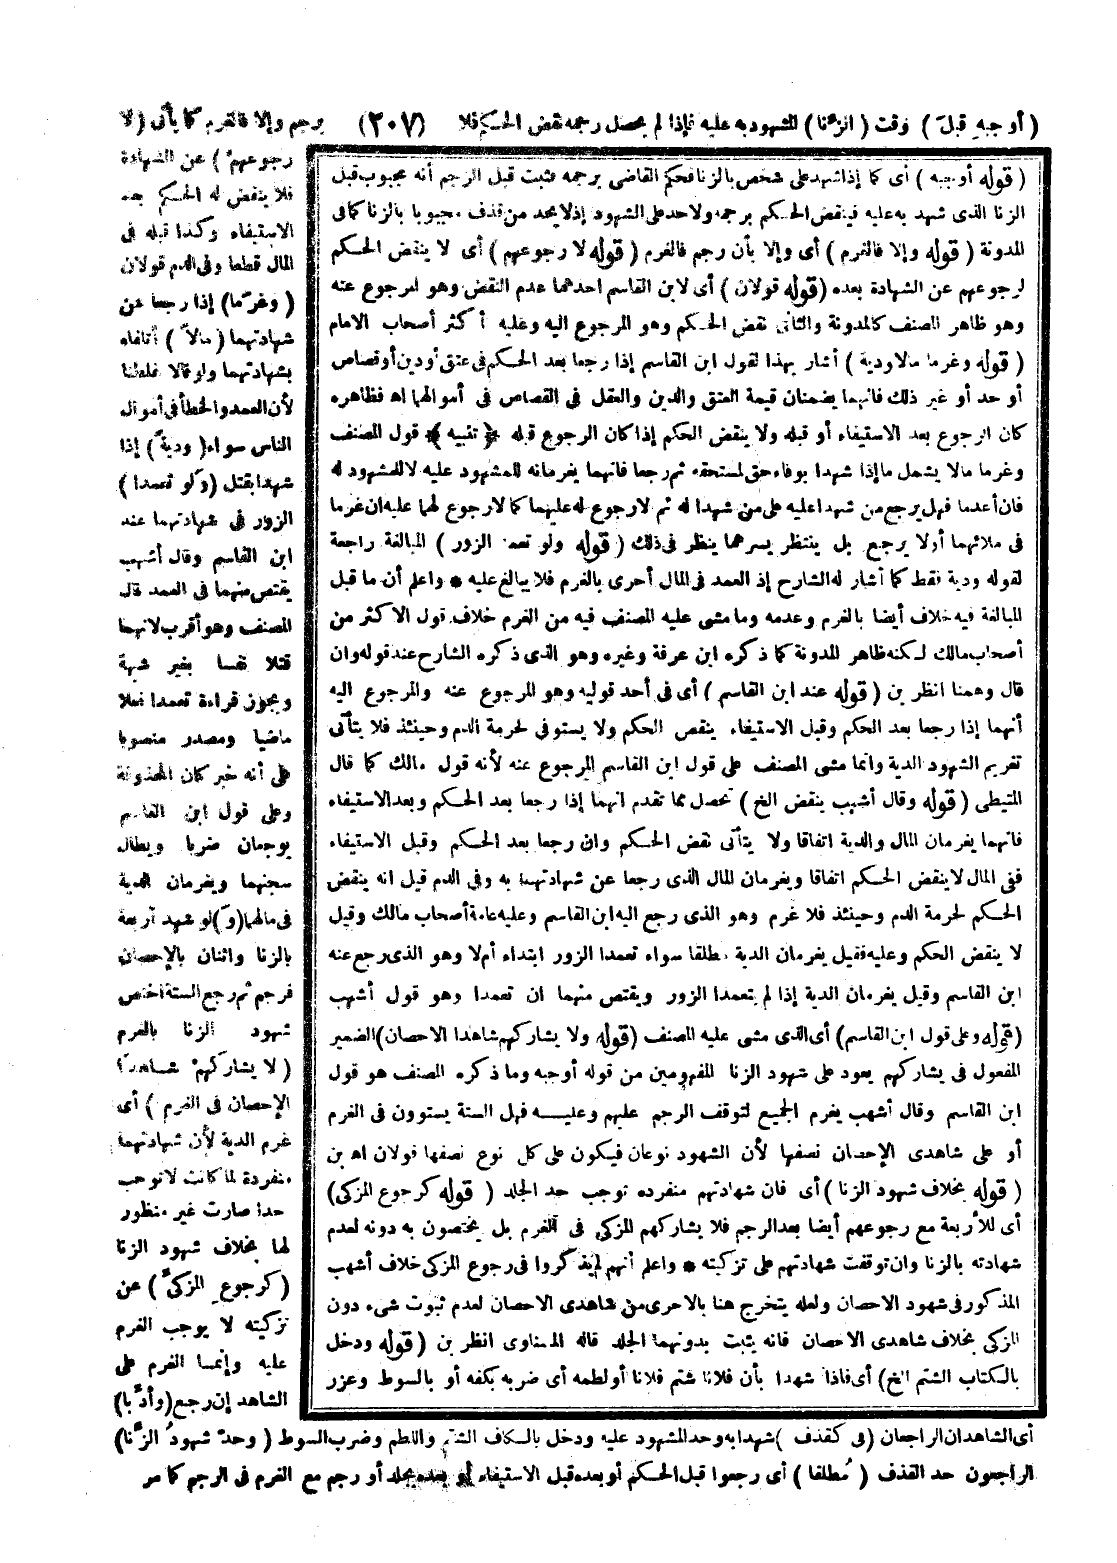 (أوجبه قبلَ) وقت (الزِّنا) المشهود به عليه فإذا لم يحصل رجمه نقض الحكم فلا (٢٠٧) يرجم وإلا فالغرم كما يأتى (لا
رجوعهمْ) عن الشهادة
فلا ينقض له الحكم بعد
الاستيفاء وكذا قبله فى
المال قطعا وفى الدم قولان
(وغرِما) إذا رجعا عن
شهادتهما (مالاً) أتلفاه
بشهادتهما ولو قالا غلطنا
لأن العمد والخطأ فى أموال
الناس سواء (وديةً) إذا
شهدا بقتل (ولو تعمدا)
الزور فى شهادتهما عند
ابن القاسم وقال أشهب
يقتص منهما فى العمد قال
المصنف وهو أقرب لانهما
قتلا نفسا بغير شبهة
ويجوز قراءة تعمدا فعلا
ماضيا ومصدر منصوبا
على أنه خبر كان المحذوفة
وعلى قول ابن القاسم
يوجعان ضربا ويطال
سجنهما ويغرمان الدية
فى مالهما (و) لو شهد أربعة
بالزنا واثنان بالإحصان
فرجم ثم رجع الستة اختص
شهود الزنا بالغرم
(لا يشاركهمْ شاهدا
الإحصان فى الغرم) أى
غرم الدية لأن شهادتهما
منفردة لما كانت لا توجب
حدا صارت غير منظور
لها بخلاف شهود الزنا
(كرجوعِ المزكى) عن
تزكيته لا يوجب الغرم
عليه وإنما الغرم على
الشاهد إن رجع (وأدِّبا)
(قوله أوجبه) أى كما إذا شهد على شخص بالزنا فحكم القاضى برجمه فثبت قبل الرجم أنه مجبوب قبل
الزنا الذى شهد به عليه فينقض الحكم برجمه ولا حد على الشهود إذ لا يحد من قذف مجبوبا بالزنا كما فى
المدونة (قوله وإلا فالغرم) أى وإلا بأن رجم فالغرم (قوله لا رجوعهم) أى لا ينقض الحكم
لرجوعهم عن الشهادة بعده (قوله قولان) أى لابن القاسم احدهما عدم النقض وهو المرجوع عنه
وهو ظاهر المصنف كالمدونة والثانى نقض الحكم وهو المرجوع اليه وعليه أكثر أصحاب الامام
(قوله وغرما مالا ودية) أشار بهذا لقول ابن القاسم إذا رجعا بعد الحكم فى عتق أو دين أو قصاص
أو حد أو غير ذلك فانهما يضمنان قيمة العتق والدين والعقل فى القصاص فى أموالهما اه فظاهره
كان الرجوع بعد الاستيفاء أو قبله ولا ينقض الحكم إذا كان الرجوع قبله ﴿تنبيه﴾ قول المصنف
وغرما مالا يشمل ما إذا شهدا بوفاء حق لمستحقه ثم رجعا فانهما يغرمانه للمشهود عليه لا للمشهود له
فان أعدما فهل يرجع من شهدا عليه على من شهدا له ثم لا رجوع له عليهما كما لا رجوع لهما عليه ان غرما
فى ملائهما أو لا يرجع بل ينتظر يسرهما ينظر فى ذلك (قوله ولو تعمدا الزور) المبالغة راجعة
لقوله ودية فقط كما أشار له الشارح إذ العمد فى المال أحرى بالغرم فلا يبالغ عليه * واعلم أن ما قبل
المبالغة فيه خلاف أيضا بالغرم وعدمه وما مشى عليه المصنف فيه من الغرم خلاف قول الاكثر من
أصحاب مالك لكنه ظاهر المدونة كما ذكره ابن عرفة وغيره وهو الذى ذكره الشارح عند قوله وان
قال وهمنا انظر بن (قوله عند ابن القاسم) أى فى أحد قوليه وهو المرجوع عنه والمرجوع اليه
أنهما إذا رجعا بعد الحكم وقبل الاستيفاء ينقض الحكم ولا يستوفى لحرمة الدم وحينئذ فلا يتأتى
تغريم الشهود الدية وانما مشى المصنف على قول ابن القاسم المرجوع عنه لأنه قول مالك كما قال
المتيطى (قوله وقال أشهب ينقض الخ) تحصل مما تقدم انهما إذا رجعا بعد الحكم وبعد الاستيفاء
فانهما يغرمان المال والدية اتفاقا ولا يتأتى نقض الحكم وان رجعا بعد الحكم وقبل الاستيفاء
ففى المال لا ينقض الحكم اتفاقا ويغرمان المال الذى رجعا عن شهادتهما به وفى الدم قيل انه ينقض
الحكم لحرمة الدم وحينئذ فلا غرم وهو الذى رجع اليه ابن القاسم وعليه عامة أصحاب مالك وقيل
لا ينقض الحكم وعليه فقيل يغرمان الدية مطلقا سواء تعمدا الزور ابتداء أم لا وهو الذى رجع عنه
ابن القاسم وقيل يغرمان الدية إذا لم يتعمدا الزور ويقتص منهما ان تعمدا وهو قول أشهب
(قوله وعلى قول ابن القاسم) أى الذى مشى عليه المصنف (قوله ولا يشاركهم شاهدا الاحصان) الضمير
المفعول فى يشاركهم يعود على شهود الزنا المفهومين من قوله أوجبه وما ذكره المصنف هو قول
ابن القاسم وقال أشهب يغرم الجميع لتوقف الرجم عليهم وعليه فهل الستة يستوون فى الغرم
أو على شاهدى الإحصان نصفها لأن الشهود نوعان فيكون على كل نوع نصفها قولان اه بن
(قوله بخلاف شهود الزنا) أى فان شهادتهم منفرده توجب حد الجلد (قوله كرجوع المزكى)
أى للأربعة مع رجوعهم أيضا بعد الرجم فلا يشاركهم المزكى فى الغرم بل يختصون به دونه لعدم
شهادته بالزنا وان توقفت شهادتهم على تزكيته * واعلم أنهم لم يذكروا فى رجوع المزكى خلاف أشهب
المذكور فى شهود الاحصان ولعله يتخرج هنا بالاحرى من شاهدى الاحصان لعدم ثبوت شىء دون
المزكى بخلاف شاهدى الاحصان فانه يثبت بدونهما الجلد قاله المسناوى انظر بن (قوله ودخل
بالكتاب الشتم الخ) أى فاذا شهدا بأن فلانا شتم فلانا أو لطمه أى ضربه بكفه أو بالسوط وعزر
أى الشاهدان الراجعان (فى كقذف) شهدا به وحد المشهود عليه ودخل بالكاف الشتم واللطم وضرب السوط (وحدَّ شهودُ الزِّنا)
الراجعون حد القذف (مُطلقا) أى رجعوا قبل الحكم أو بعده قبل الاستيفاء أو بعده بجلد أو رجم مع الغرم فى الرجم كما مر